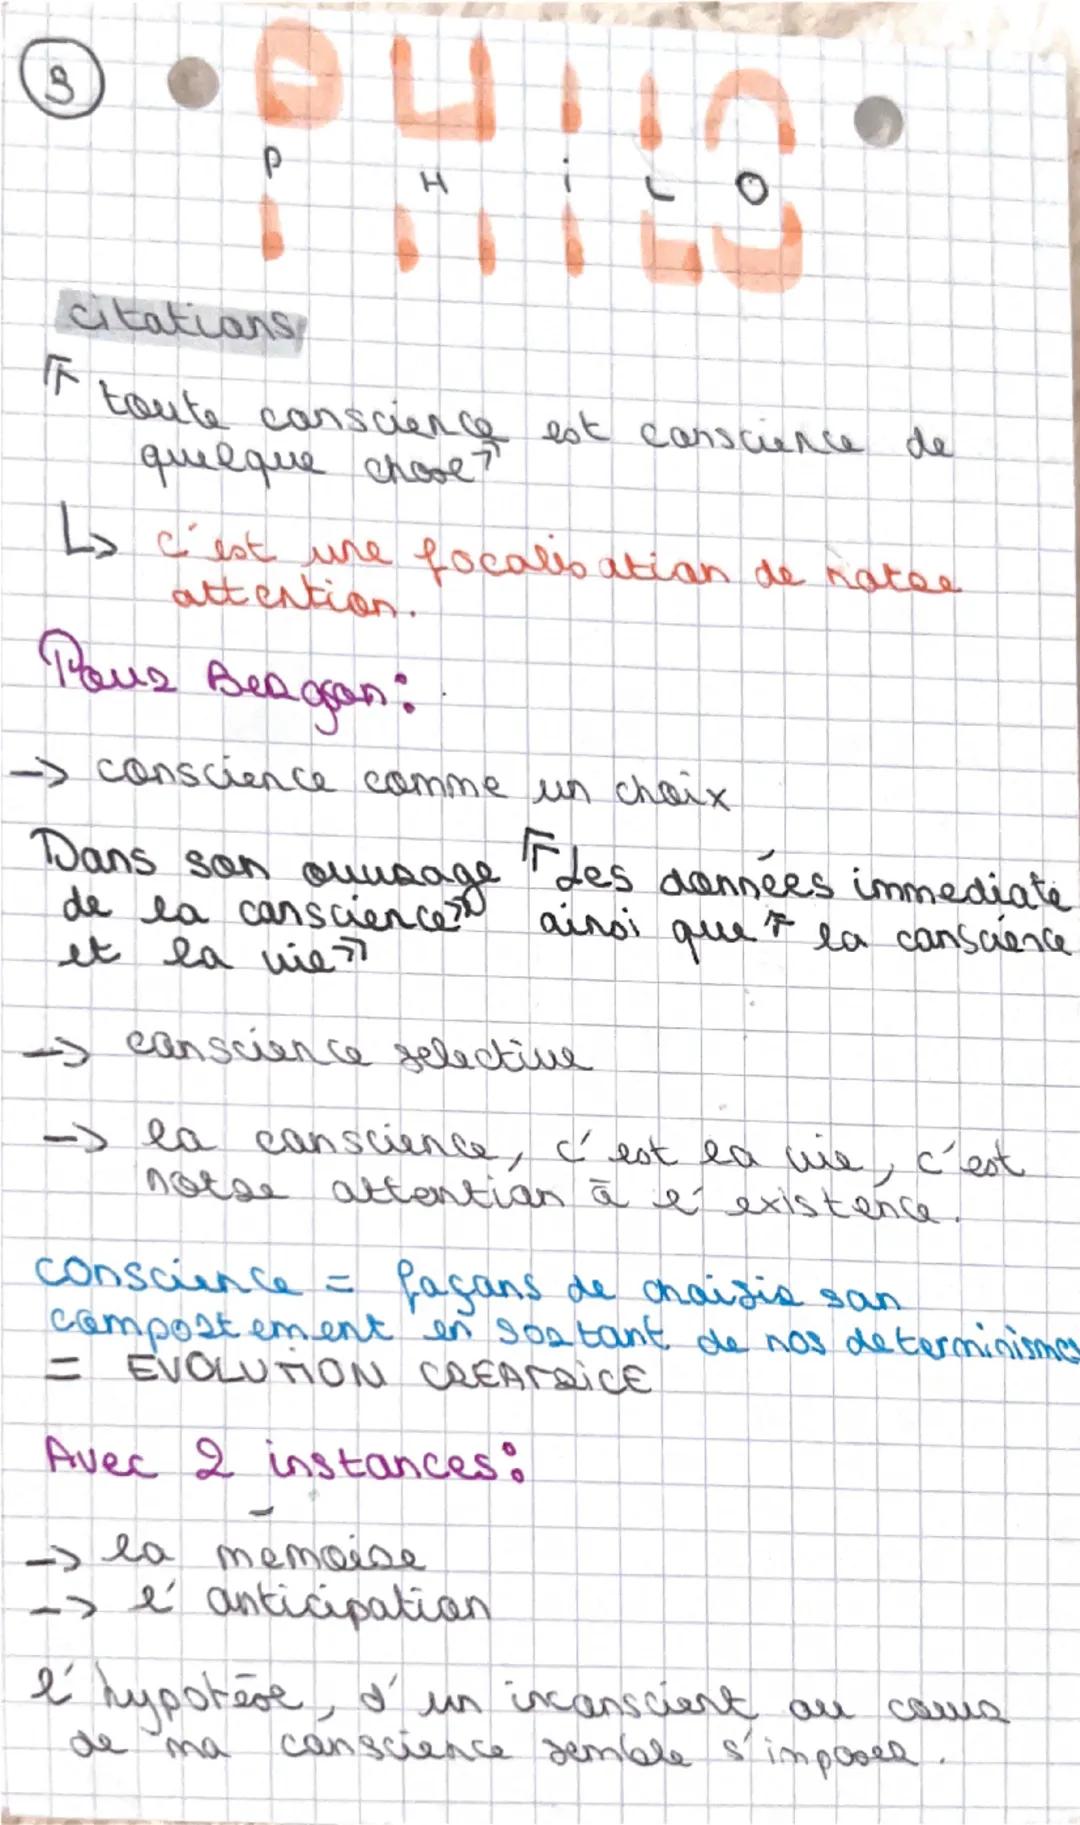 3
PHiLO
citations
« toute conscience est conscience de
quelque chose »
↳ c'est une focalisation de notre
attention.
Pour Bergson :
-> conscience comme un choix
Dans son ouvrage « les données immediate
de la conscience » ainsi que « la conscience
et la vie »
-> conscience selective
-> la conscience, c'est la vie, c'est
notre attention à l'existence.
conscience = façons de choisir son
comportement en sortant de nos determinismes
= EVOLUTION CREATRICE
Avec 2 instances :
-> la mémoire
-> l'anticipation
l'hypotèse, d'un inconscient au cours
de ma conscience semble s'imposer.